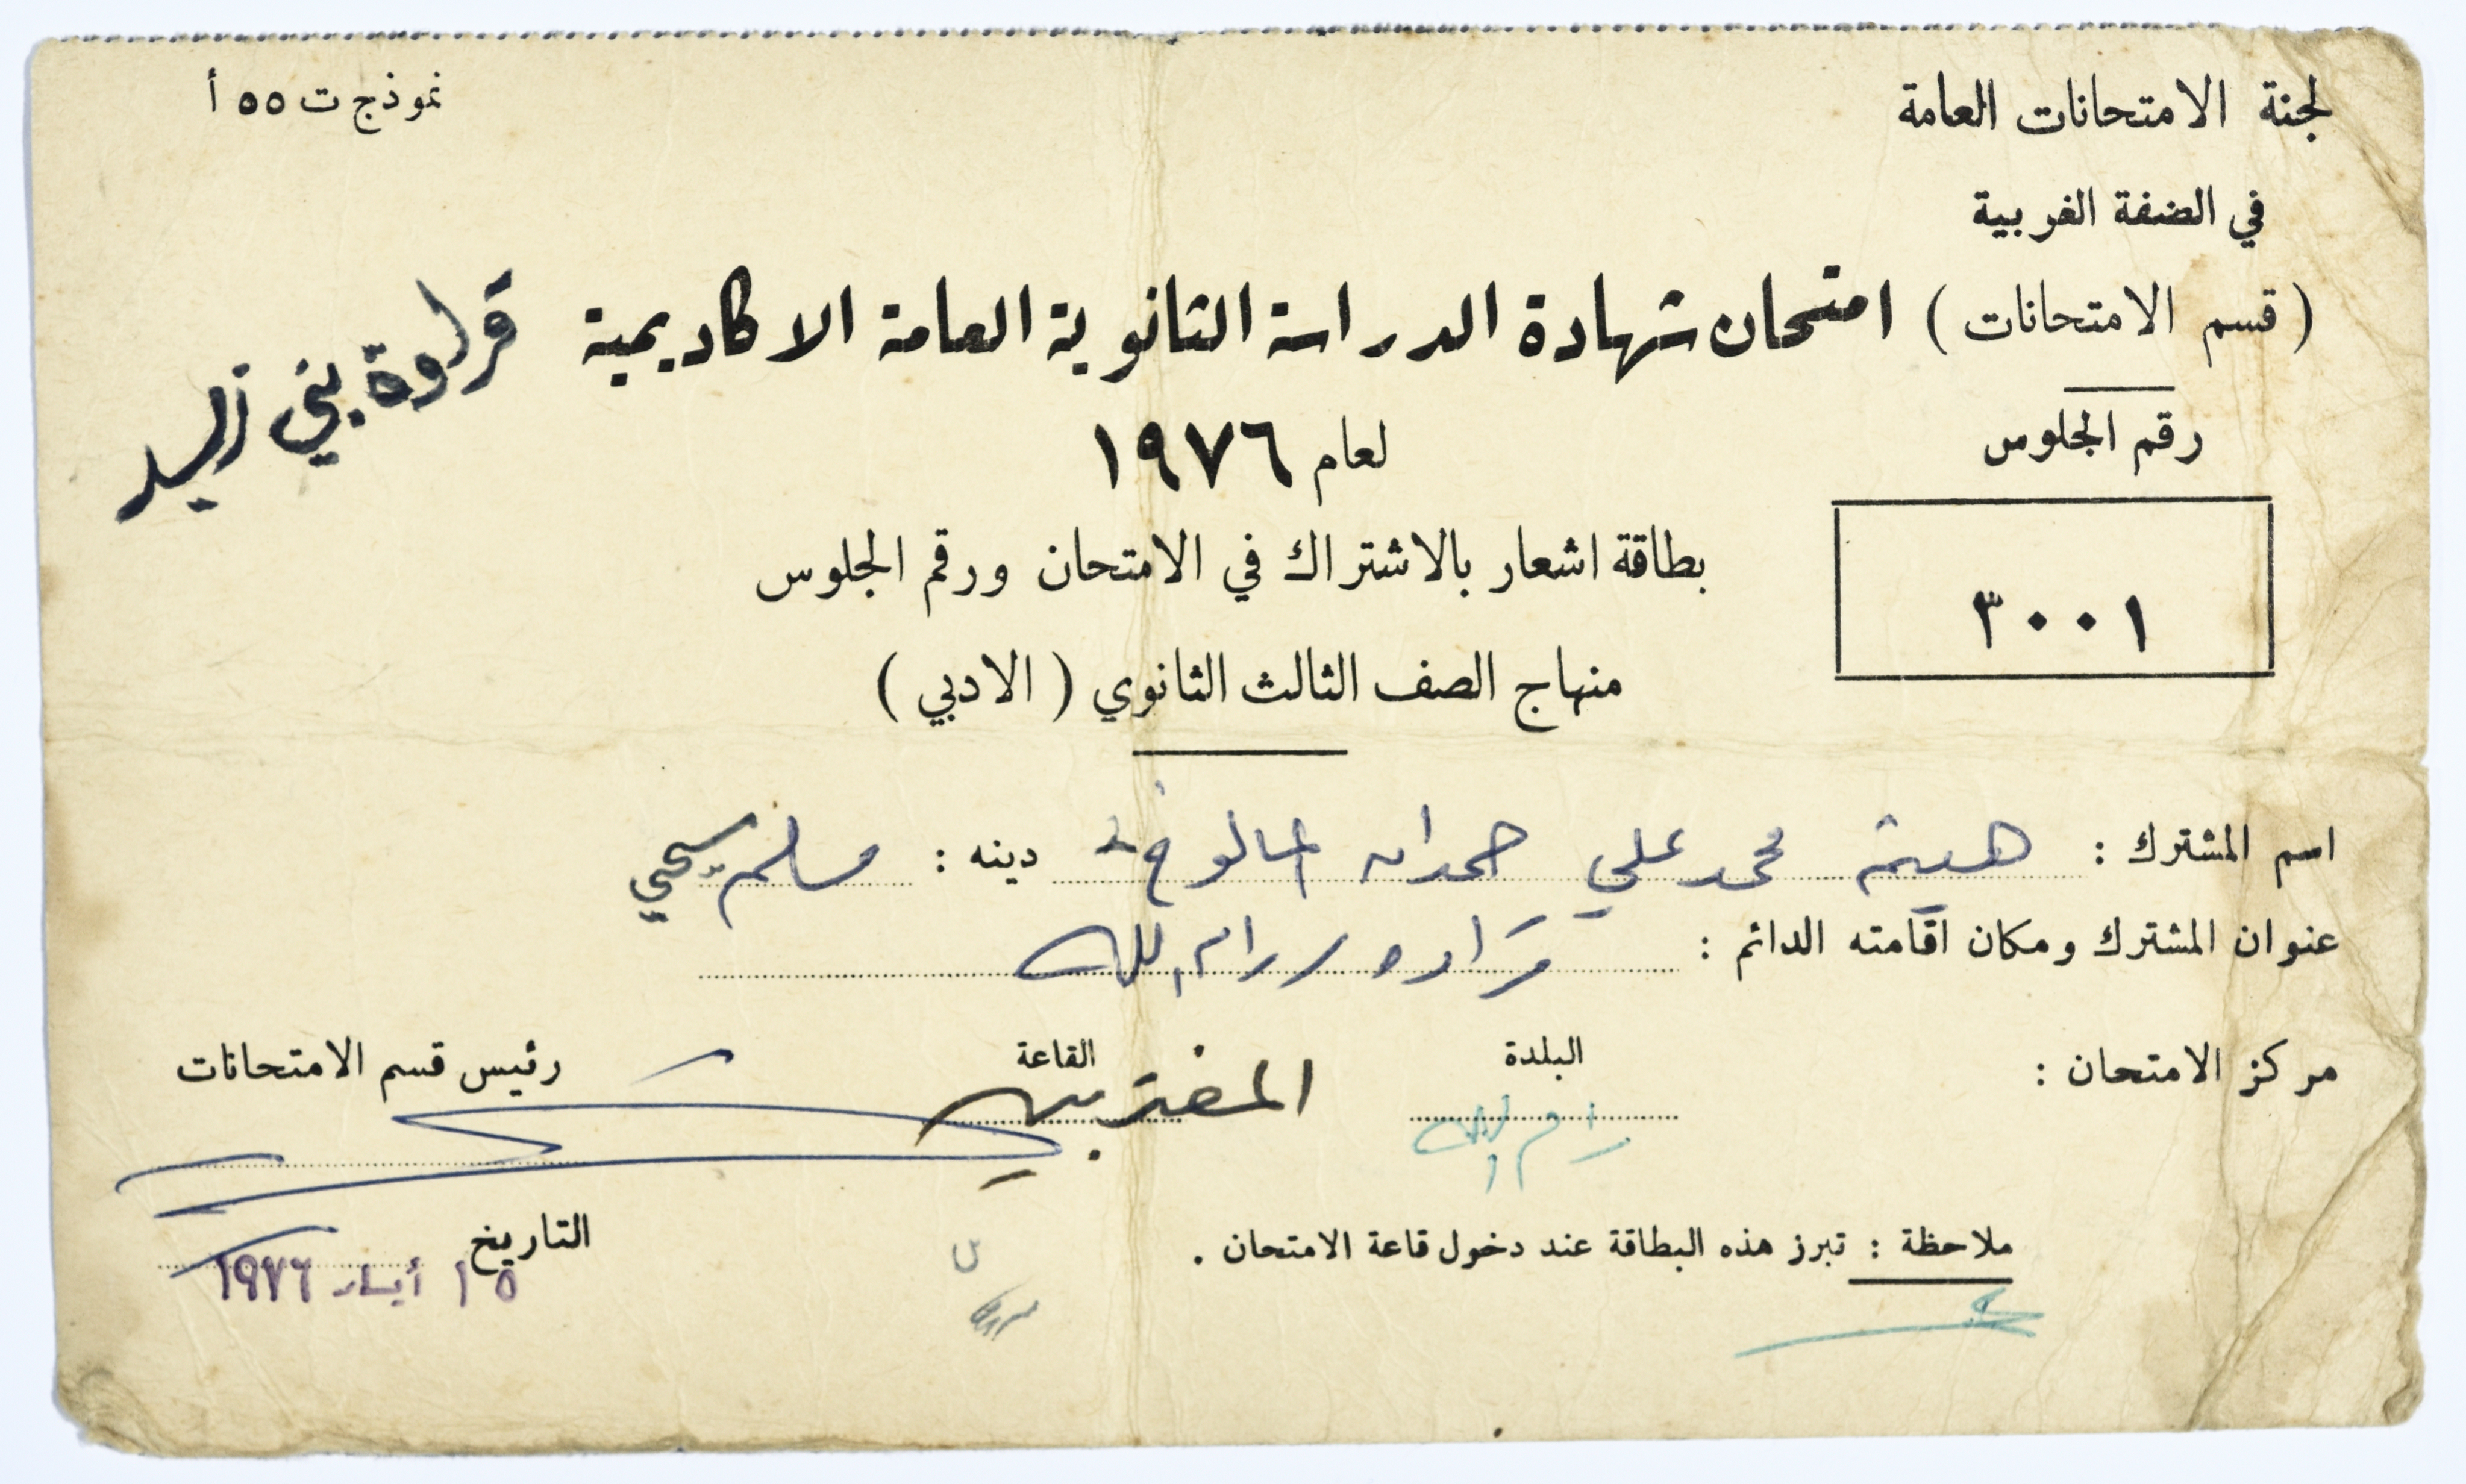 لجنة الامتحانات العامة
نموذج ت ٥٥ أ
في الضفة الغربية
(قسم الامتحانات)
امتحان شهادة الدراسة الثانوية العامة الاكاديمية
قراوة بني زيد
لعام ١٩٧٦
رقم الجلوس
٣٠٠١
بطاقة اشعار بالاشتراك في الامتحان ورقم الجلوس
منهاج الصف الثالث الثانوي (الادبي)
اسم المشترك : محمد علي حمدان دينه : مسلم
عنوان المشترك ومكان اقامته الدائم : قراوه / رام الله
مركز الامتحان : البلدة رام الله القاعة المغتربين
رئيس قسم الامتحانات
التاريخ ١٥ أيار ١٩٧٦
ملاحظة : تبرز هذه البطاقة عند دخول قاعة الامتحان .